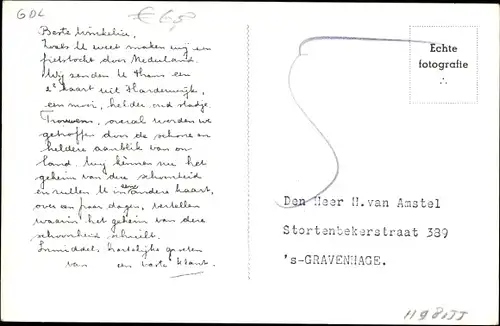 GDL
€ 6,5
Beste Winkelier,
Zoals U weet maken wij een
fietstocht door Nederland.
Wij zenden U thans een
2e kaart uit Harderwijk,
een mooi, helder oud stadje.
Trouwens, overal worden we
getroffen door de schone en
heldere aanblik van ons
land. Wij kennen nu het
geheim van deze schoonheid
en zullen U in een andere kaart,
over een paar dagen, vertellen
waarin het geheim van deze
schoonheid schuilt.
Inmiddels hartelijke groeten
van een vaste klant.
Echte
fotografie
Den Heer H.van Amstel
Stortenbekerstraat 389
's-GRAVENHAGE.